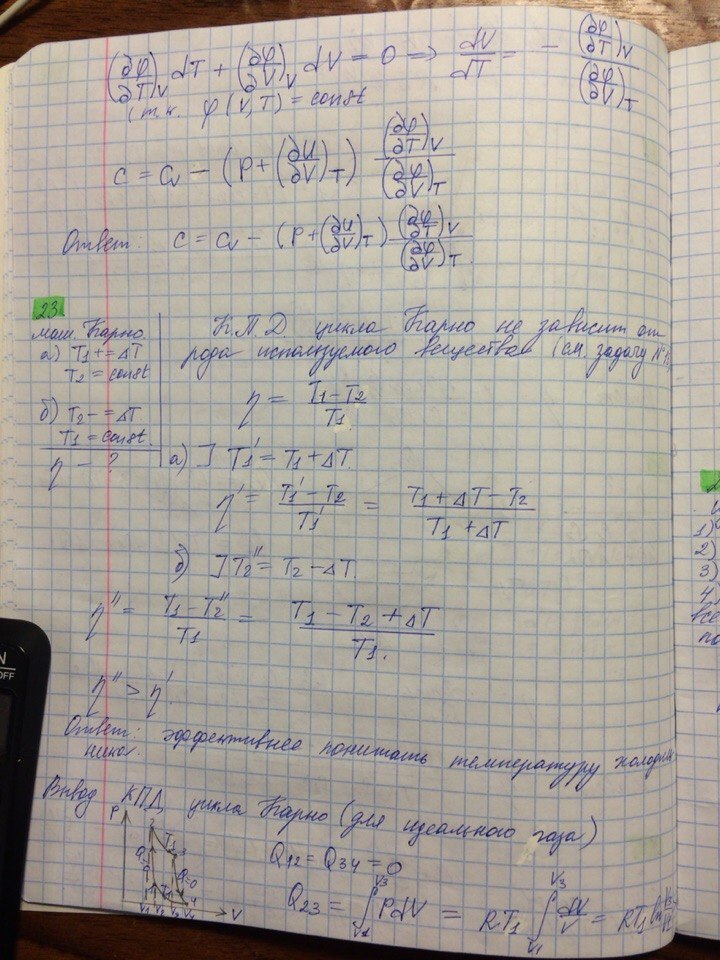 (∂φ/∂T)_V dT + (∂φ/∂V)_V dV = 0 ⇒ dV/dT = − (∂φ/∂T)_V / (∂φ/∂V)_T
(т.к. φ(V,T) = const
C = C_V − (P + (∂U/∂V)_T) (∂φ/∂T)_V / (∂φ/∂V)_T
Ответ: C = C_V − (P + (∂U/∂V)_T) (∂φ/∂T)_V / (∂φ/∂V)_T.
23
маш. Карно.
а) T1 += ΔT
T2 = const
б) T2 −= ΔT
T1 = const.
η − ?
К.П.Д. цикла Карно не зависит от
рода используемого вещества (см. задачу №
η = (T1 − T2) / T1
а) ] T1' = T1 + ΔT.
η' = (T1' − T2) / T1' = (T1 + ΔT − T2) / (T1 + ΔT)
б) ] T2'' = T2 − ΔT.
η'' = (T1 − T2'') / T1 = (T1 − T2 + ΔT) / T1.
η'' > η'.
Ответ: эффективнее понижать температуру холодиль
ника.
Вывод КПД цикла Карно (для идеального газа)
P
2
T1
3
Q=0
4
V1
V2
V3
V4
V
Q12 = Q34 = 0
Q23 = ∫ PdV = RT1 ∫ dV/V = RT1 ln
V3
V1
V3
V1
N
OFF
1)
2)
3)
4)
все
по